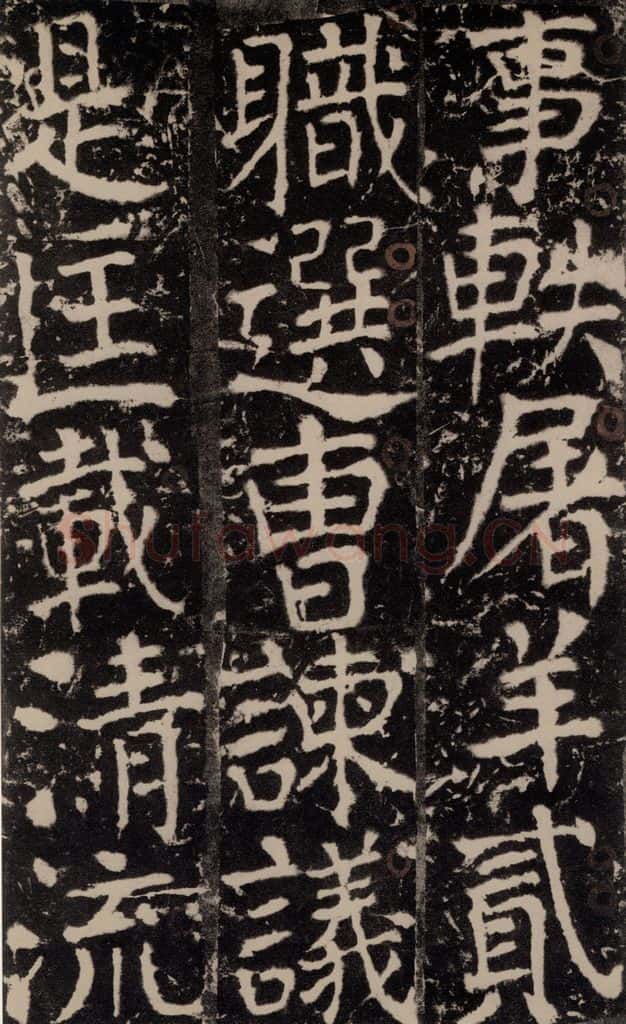 事軼屠羊貳
職選曹諫議
是匡載清流
Shufawang.CN